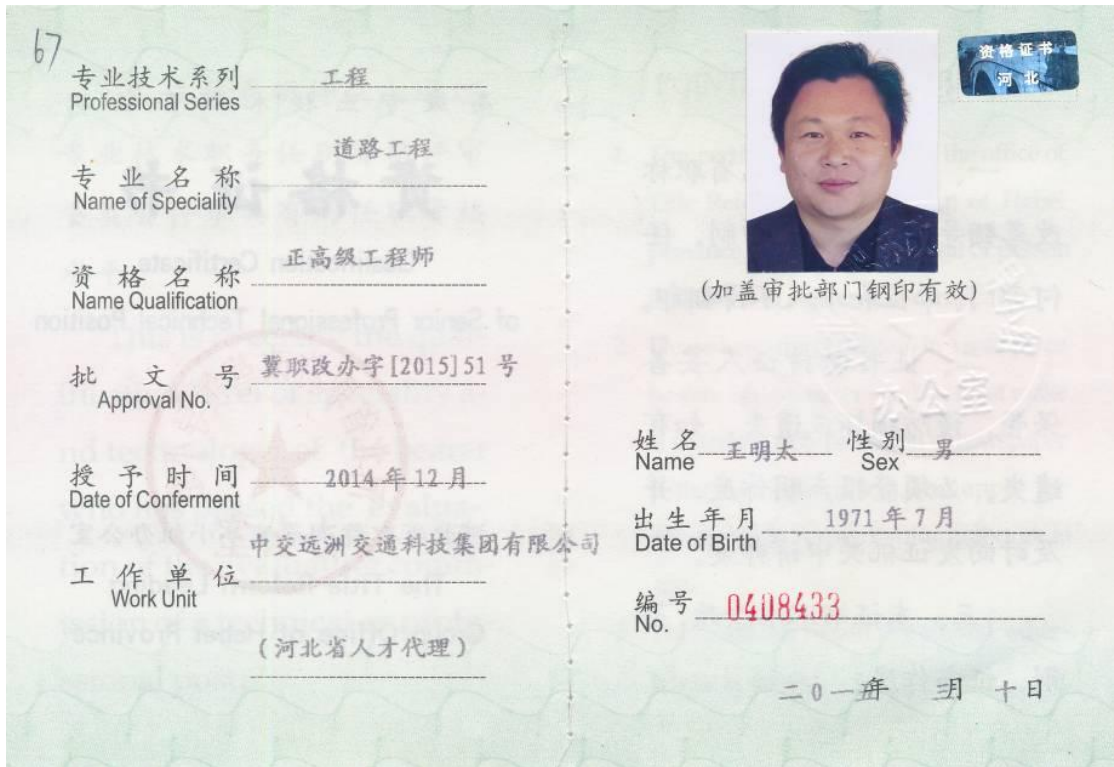 67
专业技术系列 工程
Professional Series
专业名称 道路工程
Name of Speciality
资格名称 正高级工程师
Name Qualification
批文号 冀职改办字[2015]51号
Approval No.
授予时间 2014年12月
Date of Conferment
中交远洲交通科技集团有限公司
工作单位
Work Unit
(河北省人才代理)
资格证书
河北
(加盖审批部门钢印有效)
办公室
姓名 王明太 性别 男
Name Sex
出生年月 1971年7月
Date of Birth
编号 0408433
No.
二0一 年 月 十日